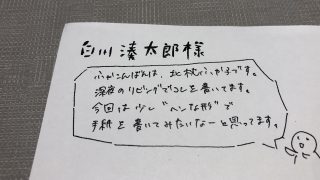 白川湊太郎様
ふかこんばんは、北枕ふか子です。
深夜のリビングでコレを書いてます。
今回は少し"ヘンな形"で
手紙を書いてみたいなーと思ってます。